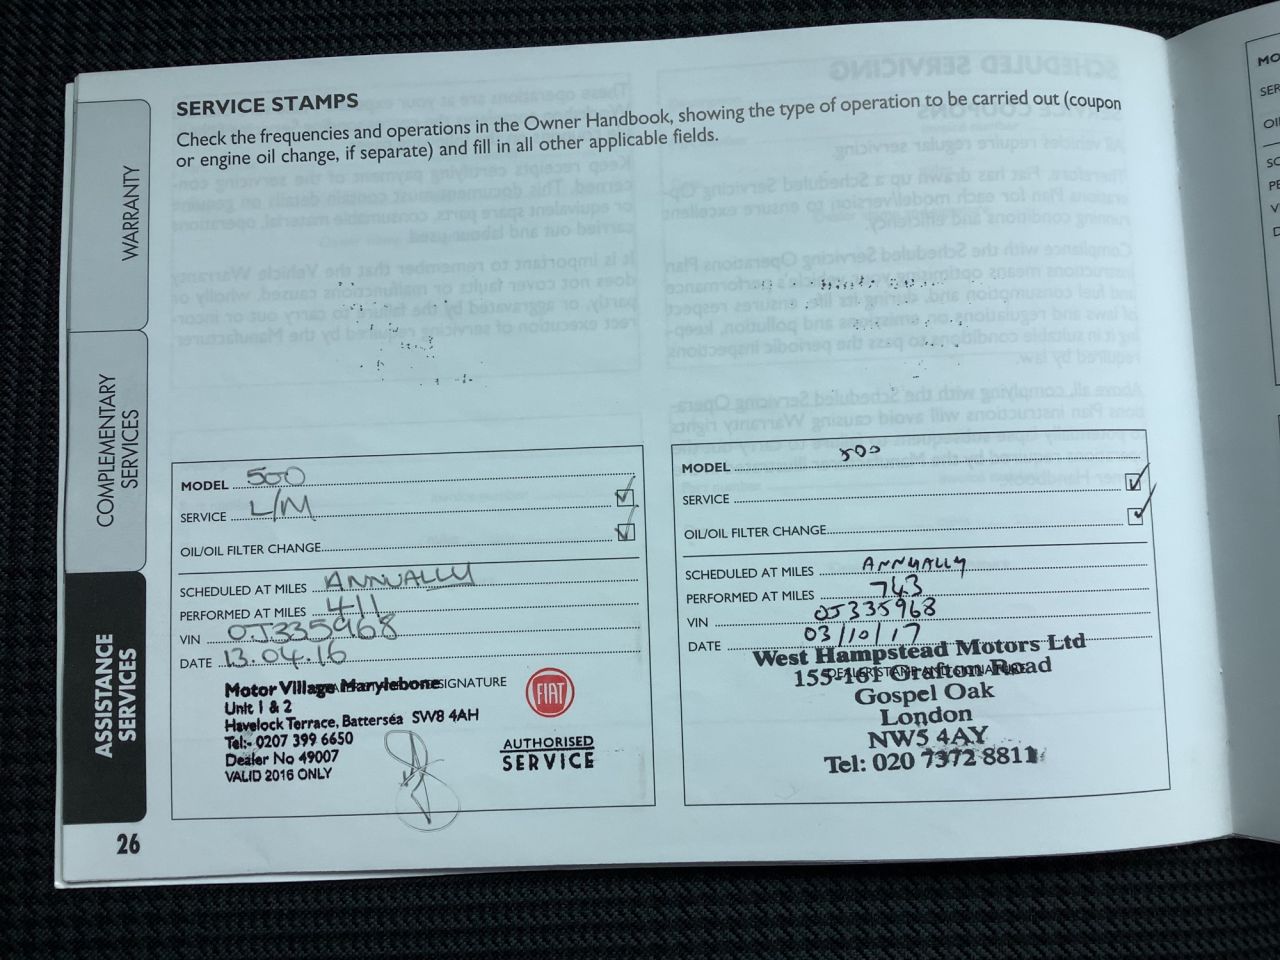 SERVICE STAMPS
Check the frequencies and operations in the Owner Handbook, showing the type of operation to be carried out (coupon
or engine oil change, if separate) and fill in all other applicable fields.
WARRANTY
COMPLEMENTARY
SERVICES
ASSISTANCE
SERVICES
MODEL 500
SERVICE L/M
OIL/OIL FILTER CHANGE
SCHEDULED AT MILES ANNUALLY
PERFORMED AT MILES 411
VIN 0J335968
DATE 13.04.16
SIGNATURE
Motor Village Marylebone
Unit 1 & 2
Havelock Terrace, Battersea SW8 4AH
Tel:- 0207 399 6650
Dealer No 49007
VALID 2016 ONLY
FIAT
AUTHORISED
SERVICE
MODEL 500
SERVICE
OIL/OIL FILTER CHANGE
SCHEDULED AT MILES ANNUALLY
PERFORMED AT MILES 743
VIN 0J335968
DATE 03/10/17
DEALER STAMP AND SIGNATURE
West Hampstead Motors Ltd
155-161 Grafton Road
Gospel Oak
London
NW5 4AY
Tel: 020 7372 8811
26